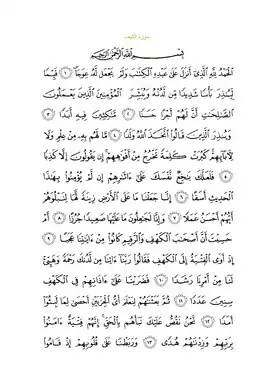 سورة الكهف
بِسْمِ اللَّهِ الرَّحْمَٰنِ الرَّحِيمِ
الْحَمْدُ لِلَّهِ الَّذِي أَنزَلَ عَلَىٰ عَبْدِهِ الْكِتَابَ وَلَمْ يَجْعَل لَّهُ عِوَجًا ۜ ١ قَيِّمًا
لِّيُنذِرَ بَأْسًا شَدِيدًا مِّن لَّدُنْهُ وَيُبَشِّرَ الْمُؤْمِنِينَ الَّذِينَ يَعْمَلُونَ
الصَّالِحَاتِ أَنَّ لَهُمْ أَجْرًا حَسَنًا ٢ مَّاكِثِينَ فِيهِ أَبَدًا ٣
وَيُنذِرَ الَّذِينَ قَالُوا اتَّخَذَ اللَّهُ وَلَدًا ٤ مَّا لَهُم بِهِ مِنْ عِلْمٍ وَلَا
لِآبَائِهِمْ كَبُرَتْ كَلِمَةً تَخْرُجُ مِنْ أَفْوَاهِهِمْ إِن يَقُولُونَ إِلَّا كَذِبًا
٥ فَلَعَلَّكَ بَاخِعٌ نَّفْسَكَ عَلَىٰ آثَارِهِمْ إِن لَّمْ يُؤْمِنُوا بِهَٰذَا
الْحَدِيثِ أَسَفًا ٦ إِنَّا جَعَلْنَا مَا عَلَى الْأَرْضِ زِينَةً لَّهَا لِنَبْلُوَهُمْ
أَيُّهُمْ أَحْسَنُ عَمَلًا ٧ وَإِنَّا لَجَاعِلُونَ مَا عَلَيْهَا صَعِيدًا جُرُزًا ٨ أَمْ
حَسِبْتَ أَنَّ أَصْحَابَ الْكَهْفِ وَالرَّقِيمِ كَانُوا مِنْ آيَاتِنَا عَجَبًا ٩
إِذْ أَوَى الْفِتْيَةُ إِلَى الْكَهْفِ فَقَالُوا رَبَّنَا آتِنَا مِن لَّدُنكَ رَحْمَةً وَهَيِّئْ
لَنَا مِنْ أَمْرِنَا رَشَدًا ١٠ فَضَرَبْنَا عَلَىٰ آذَانِهِمْ فِي الْكَهْفِ
سِنِينَ عَدَدًا ١١ ثُمَّ بَعَثْنَاهُمْ لِنَعْلَمَ أَيُّ الْحِزْبَيْنِ أَحْصَىٰ لِمَا لَبِثُوا
أَمَدًا ١٢ نَّحْنُ نَقُصُّ عَلَيْكَ نَبَأَهُم بِالْحَقِّ إِنَّهُمْ فِتْيَةٌ آمَنُوا
بِرَبِّهِمْ وَزِدْنَاهُمْ هُدًى ١٣ وَرَبَطْنَا عَلَىٰ قُلُوبِهِمْ إِذْ قَامُوا